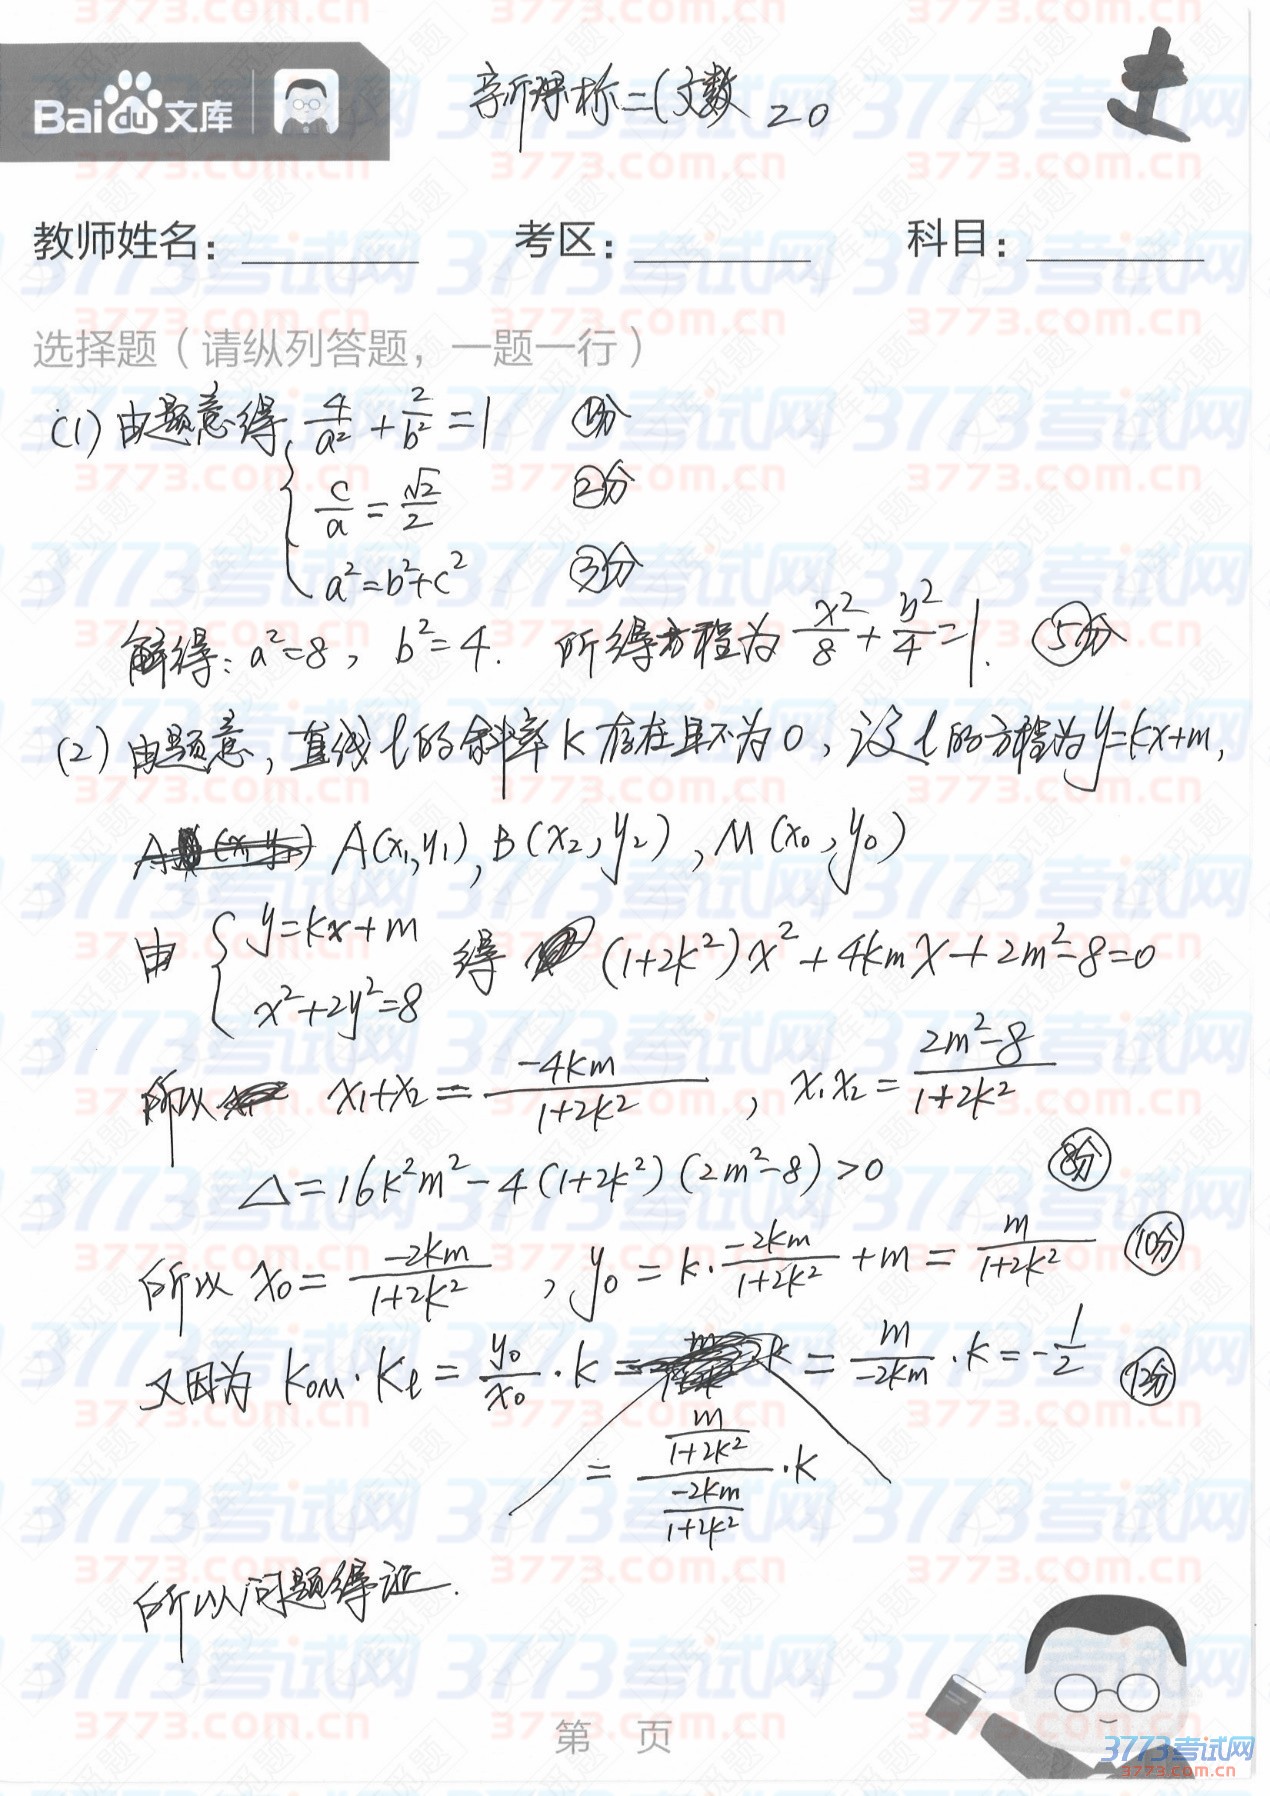 Baidu文库
新课标二(文数 20
土
教师姓名: 考区: 科目:
选择题（请纵列答题，一题一行）
(1) 由题意得 { 4/a² + 2/b² = 1 ①分
c/a = √2/2 ②分
a²=b²+c² ③分
解得: a²=8, b²=4. 所得方程为 x²/8 + y²/4 = 1. ⑤分
(2) 由题意, 直线l的斜率k存在且不为0, 设l的方程为y=kx+m,
A(x₁,y₁), B(x₂,y₂), M(x₀,y₀)
由 { y=kx+m
x²+2y²=8 得 (1+2k²)x²+4kmx+2m²-8=0
所以 x₁+x₂ = -4km/(1+2k²), x₁x₂ = (2m²-8)/(1+2k²)
△=16k²m²-4(1+2k²)(2m²-8)>0 8分
所以 x₀ = -2km/(1+2k²), y₀ = k·(-2km)/(1+2k²) + m = m/(1+2k²) 10分
又因为 kOM·kl = y₀/x₀ · k = m/(-2km) · k = -1/2 12分
= (m/(1+2k²))/(-2km/(1+2k²)) · k
所以问题得证.
第 页
3773考试网
3773.com.cn